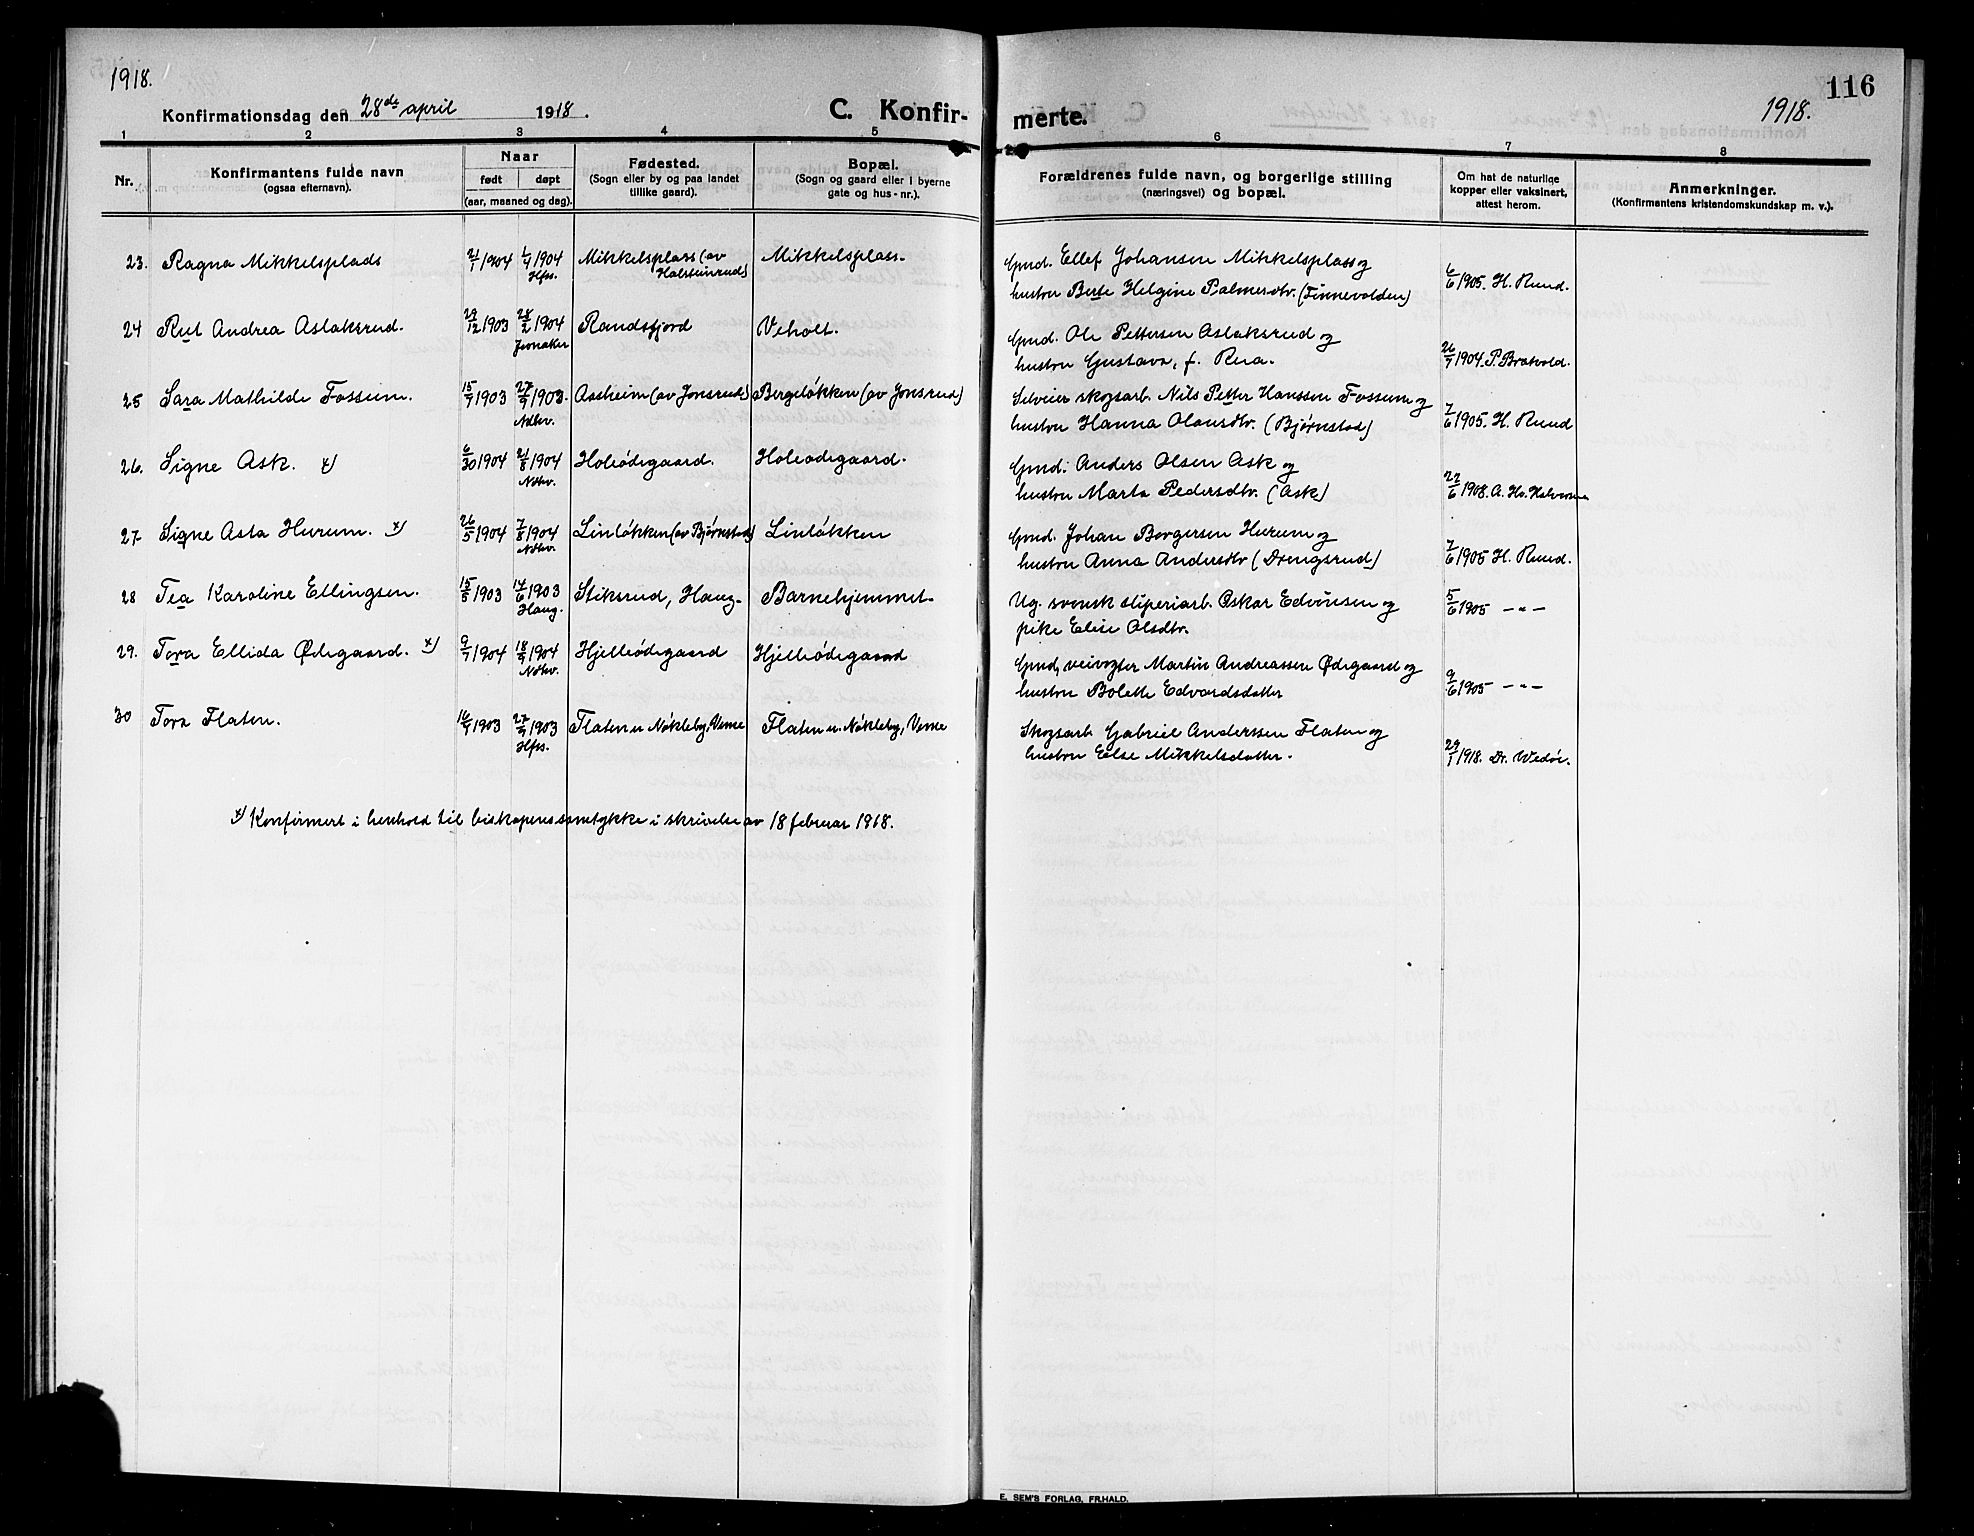 1918.
116
1918.
Konfirmationsdag den 28de april 1918.
C. Konfir-
merte.
1 2 3 4 5 6 7 8
Nr.
Konfirmantens fulde navn
(ogsaa efternavn).
Naar
født døpt
(aar, maaned og dag).
Fødested.
(Sogn eller by og paa landet
tillike gaard).
Bopæl.
(Sogn og gaard eller i byerne
gate og hus-nr.).
Forældrenes fulde navn, og borgerlige stilling
(næringsvei) og bopæl.
Om hat de naturlige
kopper eller vaksinert,
attest herom.
Anmerkninger.
(Konfirmantens kristendomskundskap m. v.).
23. Ragna Mikkelsplads 21/1 1904 1/4 1904 Mikkelsplass (av Mikkelsplass. Gmd. Ellef Johansen Mikkelsplass og
Hfss. Halsteinrud) hustru Berte Helgine Palmersdtr. (Finnevolden) 6/6 1905. H. Ruud.
24 Rut Andrea Aslaksrud. 29/12 1903 28/2 1904 Randsfjord Veholt. Gmd. Ole Pettersen Aslaksrud og
Jevnaker hustru Gustava, f. Rua. 26/7 1904. P. Bratvold.
25 Sara Mathilde Fossum. 15/7 1903 27/9 1903. Aasheim (av Jonsrud) Bergeløkken (av Jonsrud) Selveier skogsarb. Nils Petter Hanssen Fossum og
Ndhv. hustru Hanna Olausdtr. (Bjørnstad) 7/6 1905. H. Ruud
26. Signe Ask. x) 6/30 1904 21/8 1904 Holeødegaard. Holeødegaard. Gmd. Anders Olsen Ask og
Ndhv. hustru Marta Pedersdtr. (Ask) 22/6 1908. A. Ho. Halvorsen
27 Signe Asta Hurum. x) 26/5 1904 7/8 1904 Linløkken (av Bjørnstad) Linløkken Gmd. Johan Borgersen Hurum og
Ndhv. hustru Anna Andersdtr (Drengsrud) 7/6 1905 H. Ruud.
28 Tea Karoline Ellingsen. 15/5 1903 14/6 1903 Stiksrud, Haug. Barnehjemmet. Ug. svensk sliperiarb. Oskar Edvinsen og
Haug. pike Elise Olsdtr. 5/6 1905 – " –
29. Tora Ellida Ødegaard. x) 9/7 1904 18/9 1904 Hjelleødegaard Hjelleødegaard Gmd, veivogter Martin Andreassen Ødegaard og
Ndhv. hustru Bolette Edvardsdatter 9/6 1905 – " –
30 Tora Flaten. 16/4 1903 27/9 1903 Flaten u. Nøkleby, Veme Flaten u. Nøkleby, Veme Skogsarb. Gabriel Anderssen Flaten og
Hfss. hustru Else Mikkelsdatter. 29/1 1918. Dr. Wedøe.
x) Konfirmert i henhold til biskopens samtykke i skrivelse av 18 februar 1918.
E. SEM'S FORLAG, FR.HALD.